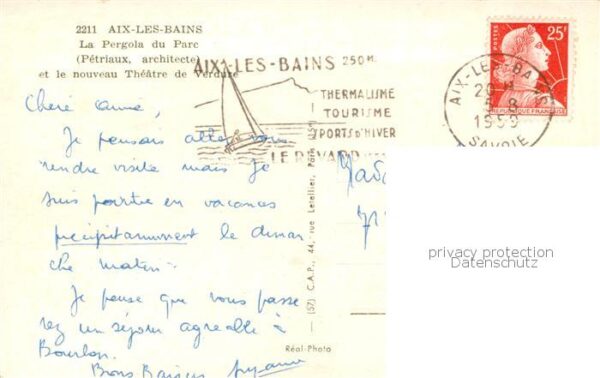 2211 AIX-LES-BAINS
La Pergola du Parc
(Pétriaux, architecte)
et le nouveau Théâtre de Verdure
AIX-LES-BAINS 250 M.
THERMALISME
TOURISME
SPORTS D'HIVER
LE REVARD
POSTES
25F
REPUBLIQUE FRANÇAISE
AIX-LES-BAINS
20 H
5-8
1959
SAVOIE
Je pensais aller vous
rendre visite mais je
suis partie en vacances
précipitamment le diman
che matin.
Je pense que vous passe
rez un séjour agréable à
Bourbon.
Bons Baisers Suzanne
(57) C.A.P., 44, rue Letellier, Paris (15e)
Réal-Photo
privacy protection
Datenschutz